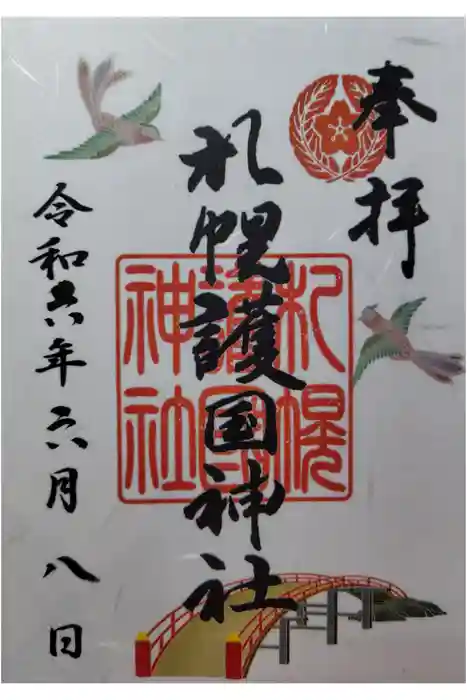 奉拝
札幌護国神社
札幌
護国
神社
令和六年六月八日